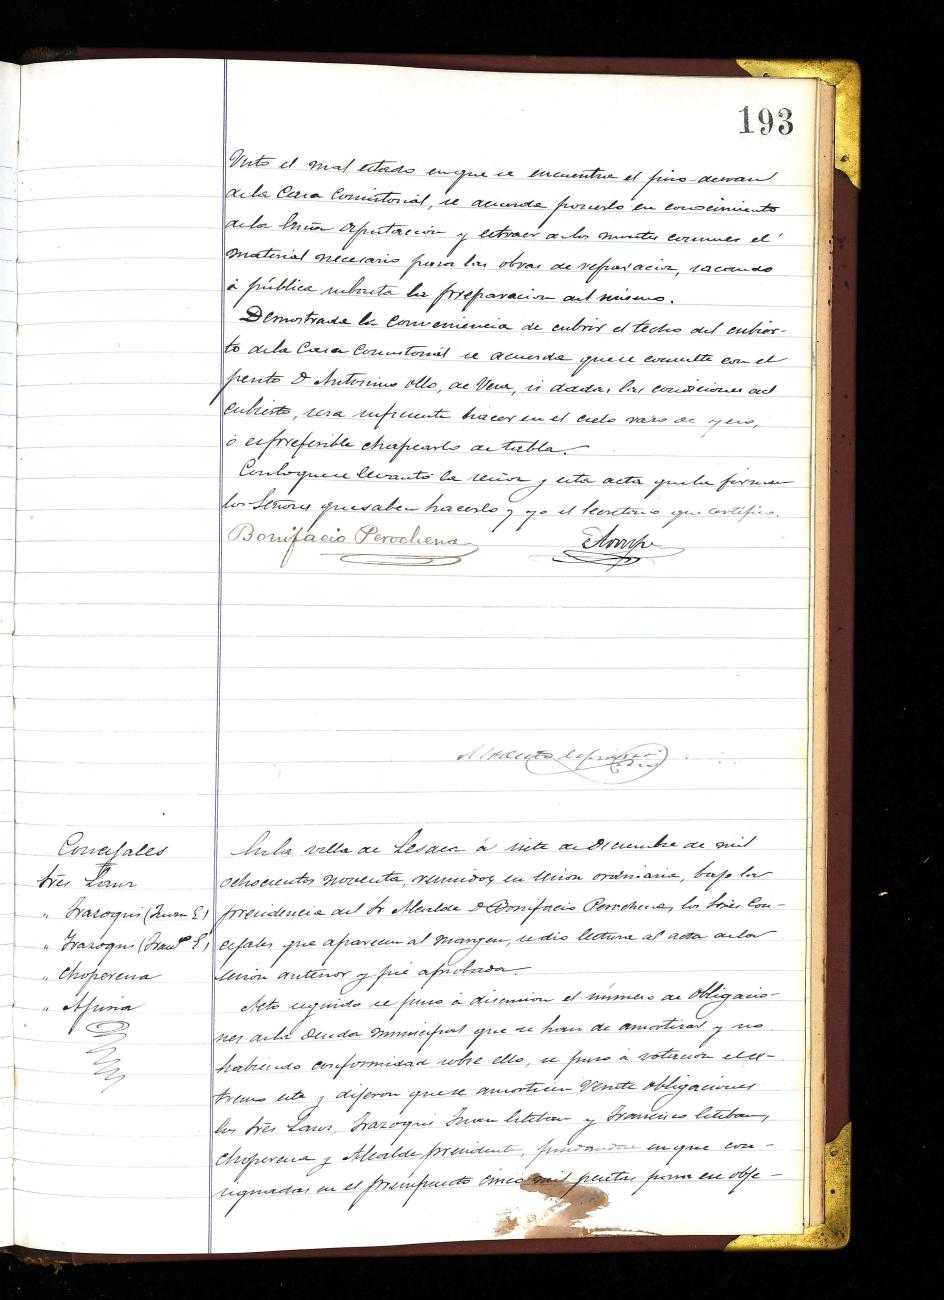 193
Visto el mal estado en que se encuentra el piso desvan
de la Casa Consistorial, se acuerda ponerlo en conocimiento
de la Exma Diputación y extraer de los montes comunes el
material necesario para las obras de reparacion, sacando
á pública subasta la preparacion del mismo.
Demostrada la conveniencia de cubrir el techo del cubier-
to de la Casa Consistorial se acuerda que se consulte con el
perito D Antonino Ollo, de Vera, si dadas las condiciones del
cubierto, sera suficiente hacer en el cielo raso de yeso,
ó es preferible chapearlo de tabla.
Con lo que se levantó la sesion y esta acta que la firman
los Señores que saben hacerlo y yo el Secretario que certifico.
Bonifacio Perochena
Concejales
Sres Sanz
" Irazoqui (Juan E)
" Irazoqui (Franco E)
" Choperena
" Apiria
En la villa de Lesaca á siete de Diciembre de mil
ochocientos noventa, reunidos en sesion ordinaria, bajo la
presidencia del Sr Alcalde D Bonifacio Perochena, los Sres Con-
cejales que aparecen al margen, se dio lectura al acta de la
sesion anterior y fué aprobada.
Acto seguido se puso á discusion el número de obligacio-
nes de la Deuda municipal que se han de amortizar y no
habiendo conformidad sobre ello, se puso á votacion el ex-
tremo este y dijeron que se amorticen Veinte obligaciones
los Sres Sanz, Irazoqui Juan Esteban y Francisco Esteban,
Choperena y Alcalde presidente, fundandose en que con-
signadas en el presupuesto cinco mil pesetas para ese obje-